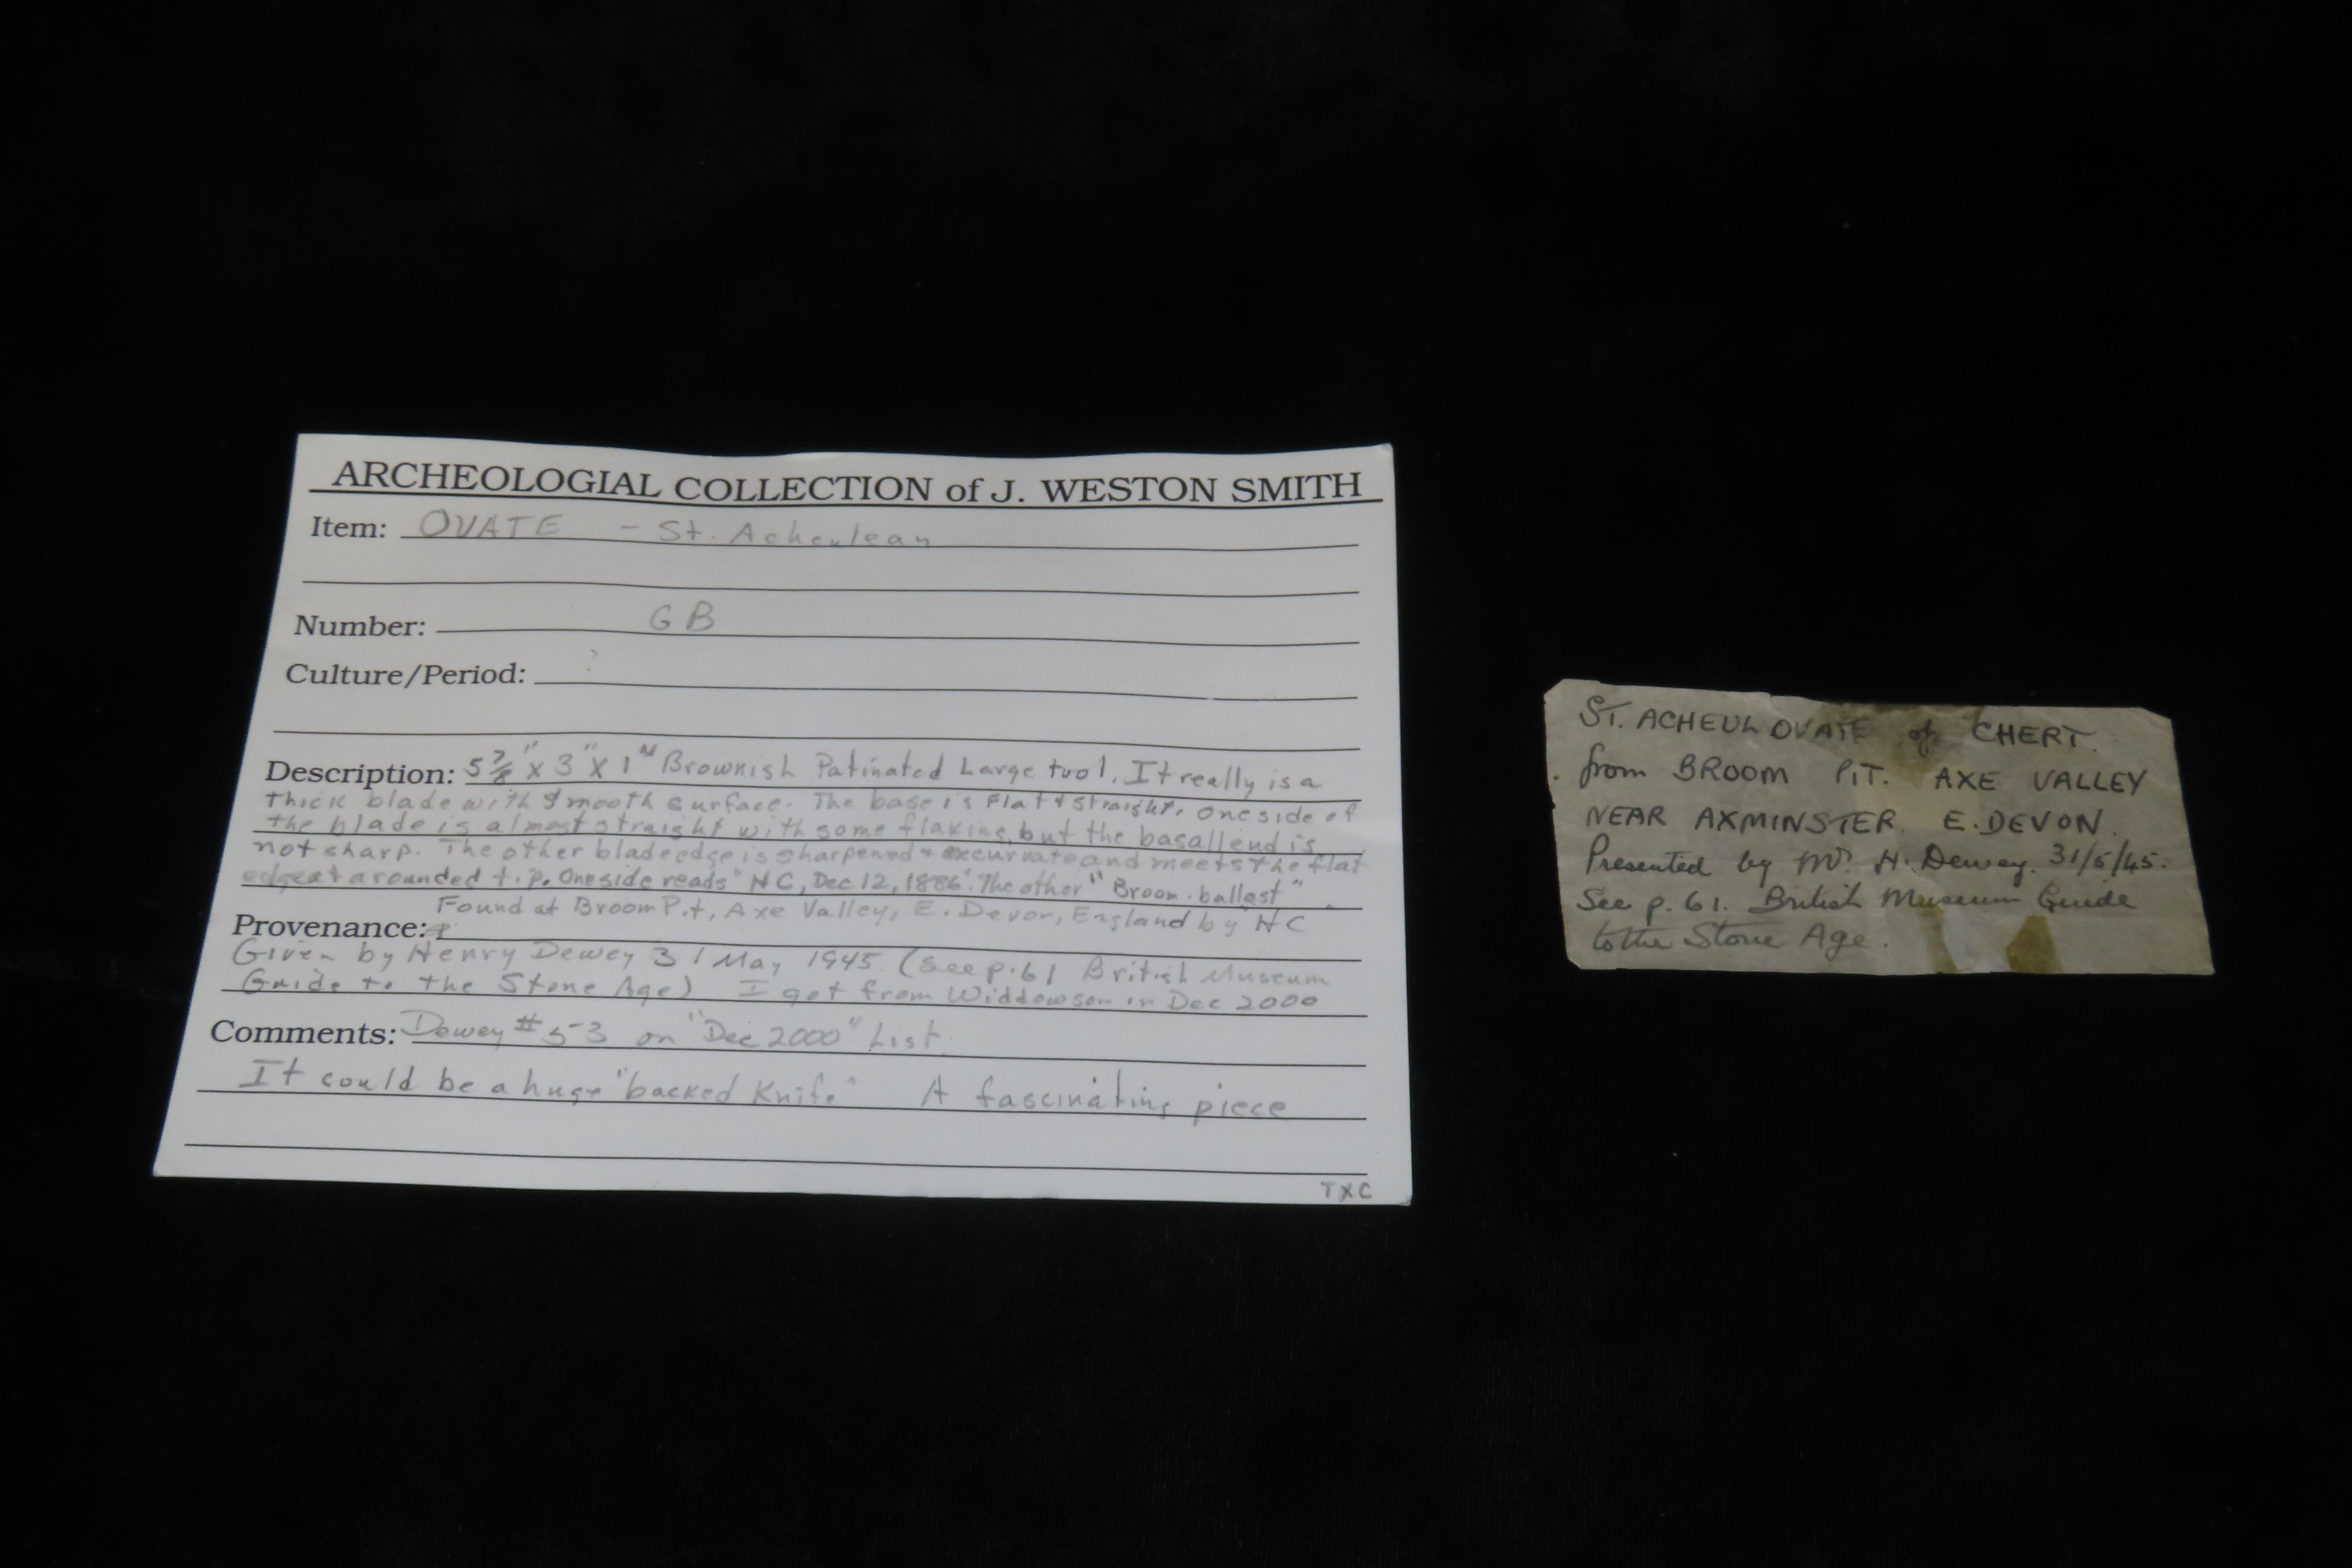 ARCHEOLOGIAL COLLECTION of J. WESTON SMITH
Item: OVATE - St. Acheulean
Number: GB
Culture/Period: ?
Description: 5 7/8" x 3" x 1" Brownish Patinated Large tool. It really is a
thick blade with smooth surface. The base is flat & straight. One side of
the blade is almost straight with some flaking, but the basal end is
not sharp. The other blade edge is sharpened & excurvate and meets the flat
edge at a rounded tip. One side reads "HC, Dec 12, 1886". The other "Broom-ballast"
Found at Broom Pit, Axe Valley, E. Devon, England by HC
Provenance:
Given by Henry Dewey 31 May 1945 (see p.61 British Museum
Guide to the Stone Age) I got from Widdowson in Dec 2000
Comments: Dewey #53 on "Dec 2000" List.
It could be a huge "backed Knife" A fascinating piece
TXC
ST. ACHEUL OVATE of CHERT.
from BROOM PIT. AXE VALLEY
NEAR AXMINSTER. E. DEVON.
Presented by Mr. H. Dewey. 31/5/45.
See p. 61. British Museum Guide
to the Stone Age.